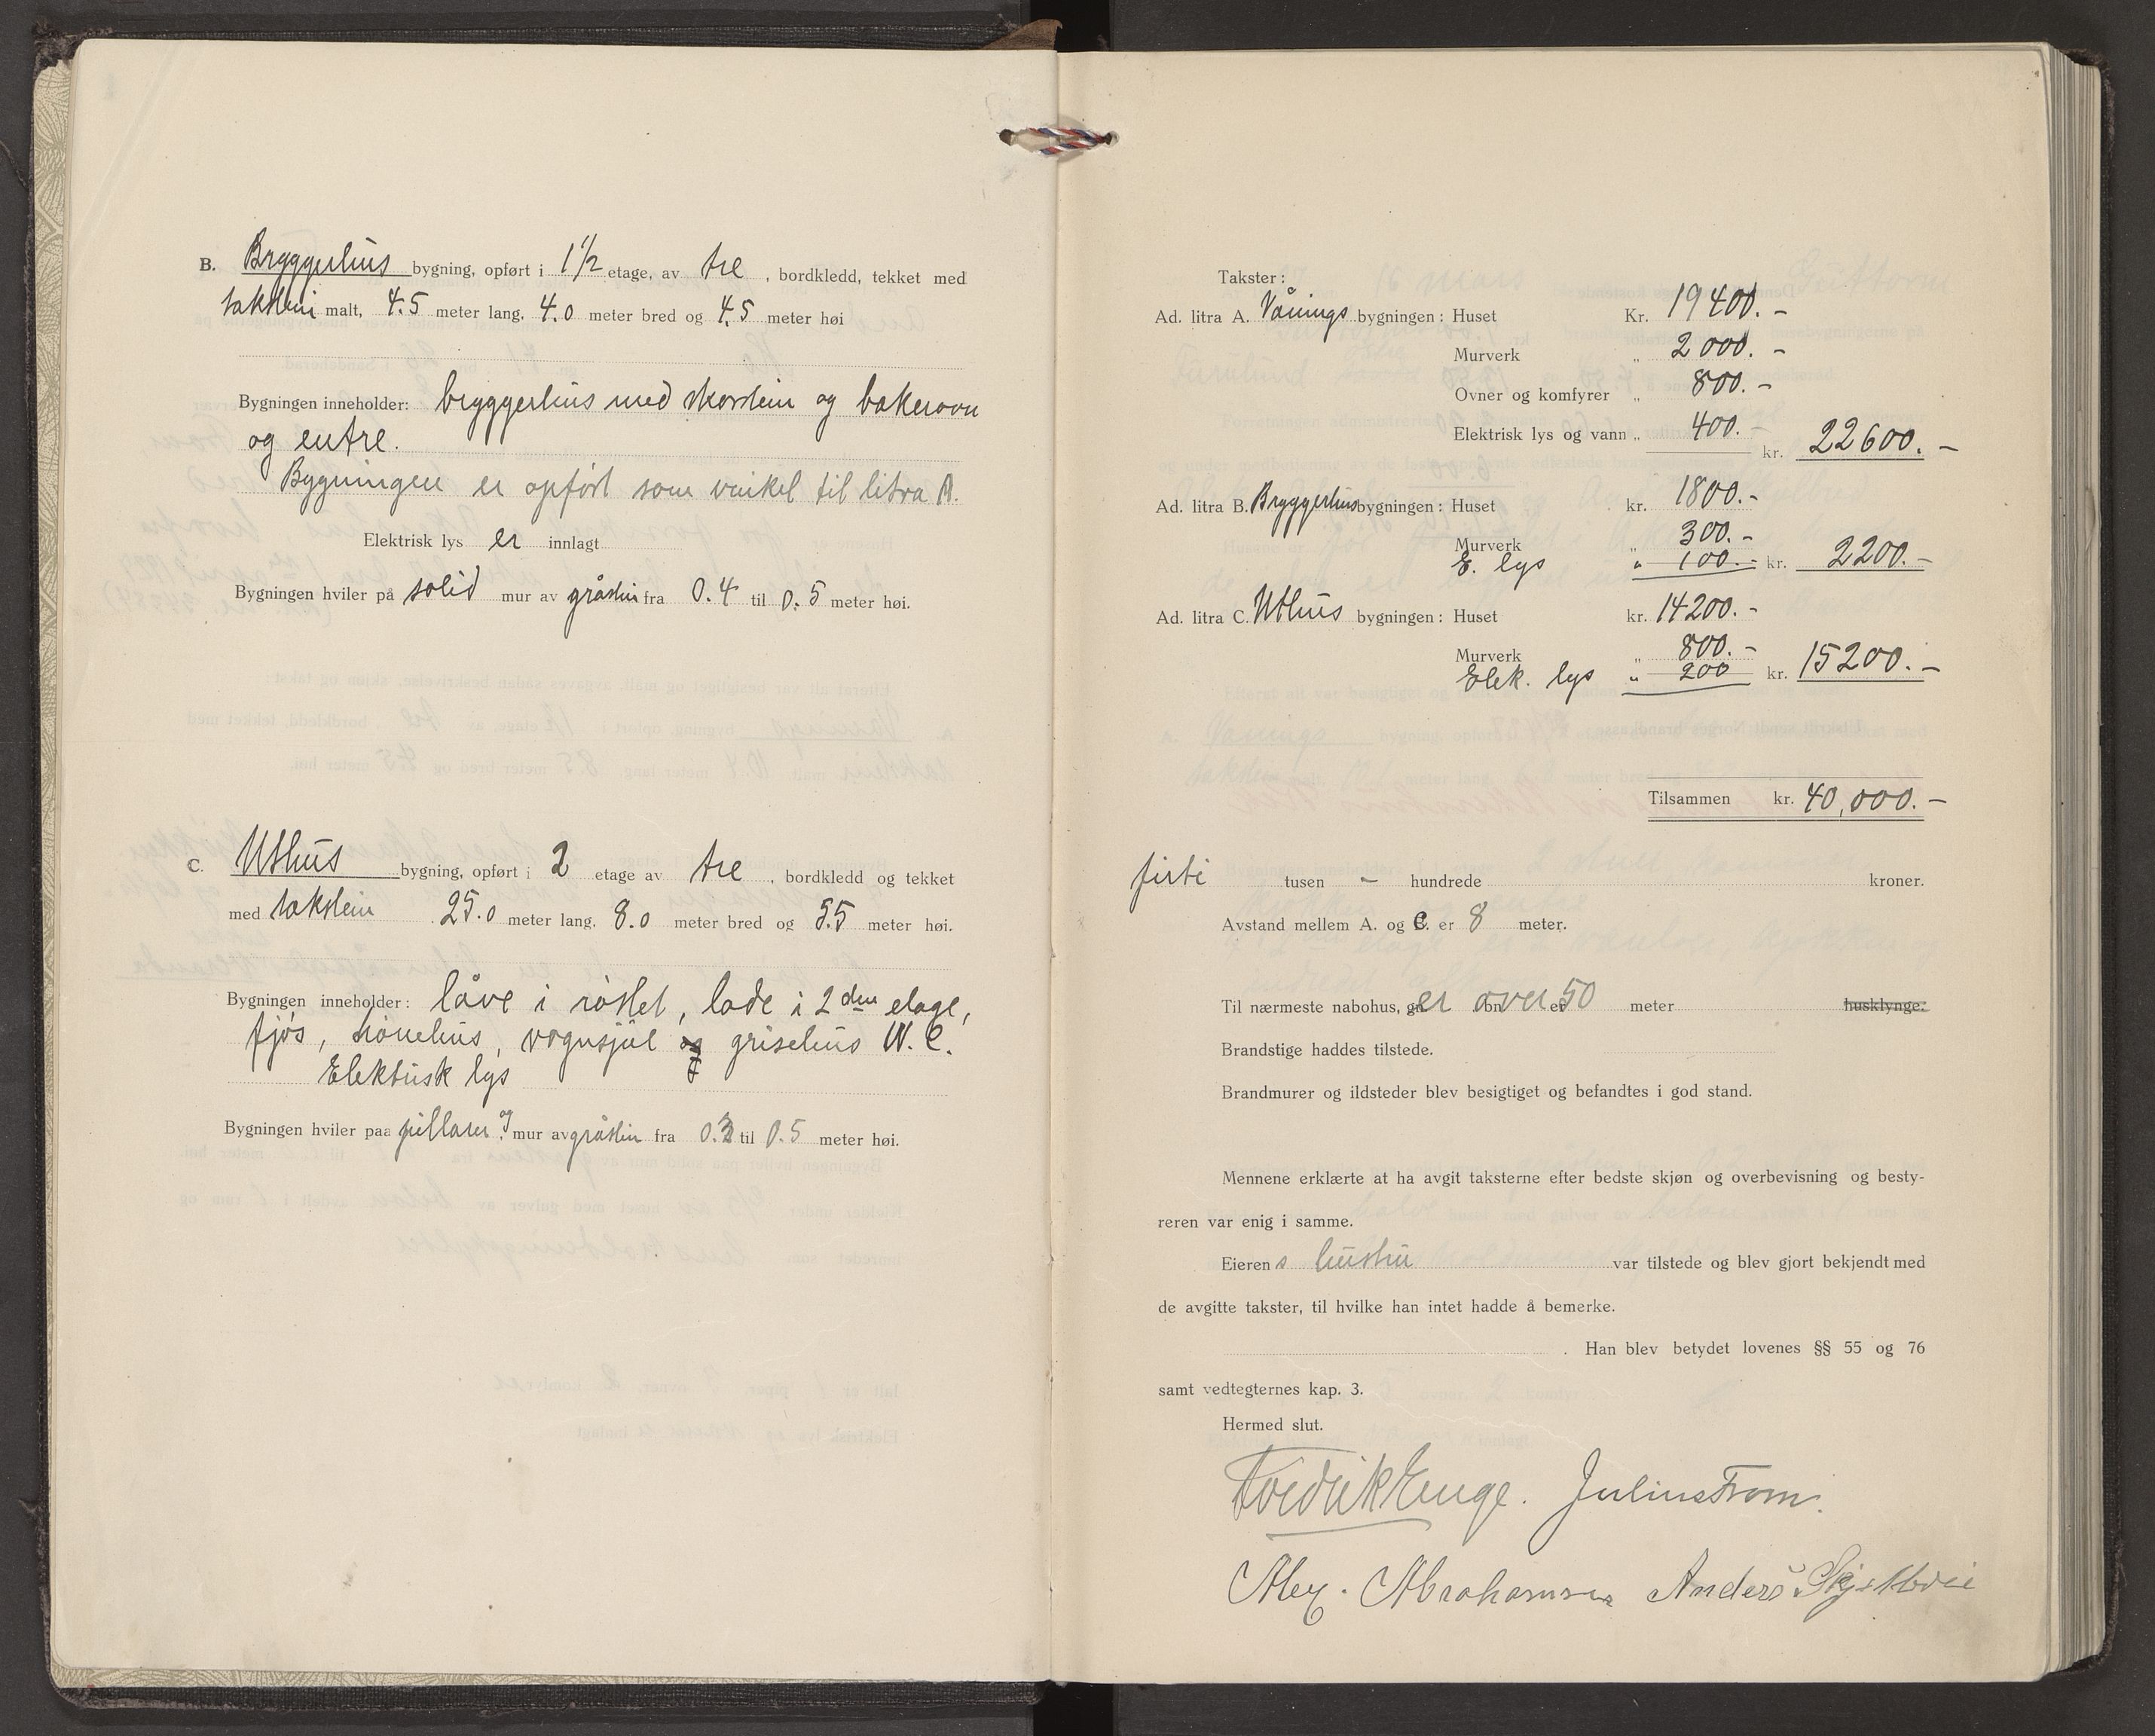 B. Bryggerhus bygning, opført i 1 1/2 etage, av tre , bordkledd, tekket med
takstein malt, 4.5 meter lang, 4.0 meter bred og 4.5 meter høi
Bygningen inneholder: bryggerhus med skorstein og bakerovn
og entre.
Bygningen er opført som vinkel til litra A.
Elektrisk lys er innlagt
Bygningen hviler på solid mur av gråstein fra 0.4 til 0.5 meter høi.
C. Uthus bygning, opført i 2 etage av tre , bordkledd og tekket
med takstein 25.0 meter lang, 8.0 meter bred og 5.5 meter høi.
Bygningen inneholder: låve i røstet, lade i 2den etage,
fjøs, hønehus, vognsjul og grisehus W.C.
Elektrisk lys
Bygningen hviler paa pillarer og mur av gråstein fra 0.3 til 0.5 meter høi.
Takster:
Ad. litra A. Vånings bygningen: Huset Kr. 19400.-
Murverk „ 2000.-
Ovner og komfyrer „ 800.-
Elektrisk lys og vann „ 400.- kr. 22600.-
Ad. litra B. Bryggerhus bygningen: Huset kr. 1800.-
Murverk „ 300.-
E. lys „ 100.- kr. 2200.-
Ad. litra C. Uthus bygningen: Huset kr. 14200.-
Murverk „ 800.-
Elek. lys „ 200 kr. 15200.-
Tilsammen kr. 40,000.-
firti tusen - hundrede kroner.
Avstand mellem A. og C. er 8 meter.
Til nærmeste nabohus, gn. er bn. over er 50 meter husklynge.
Brandstige haddes tilstede.
Brandmurer og ildsteder blev besigtiget og befandtes i god stand.
Mennene erklærte at ha avgit taksterne efter bedste skjøn og overbevisning og besty-
reren var enig i samme.
Eierens hustru var tilstede og blev gjort bekjendt med
de avgitte takster, til hvilke han intet hadde å bemerke.
. Han blev betydet lovenes §§ 55 og 76
samt vedtegternes kap. 3.
Hermed slut.
Fredrik Enge. Julius From.
Alex. Abrahamsen Anders